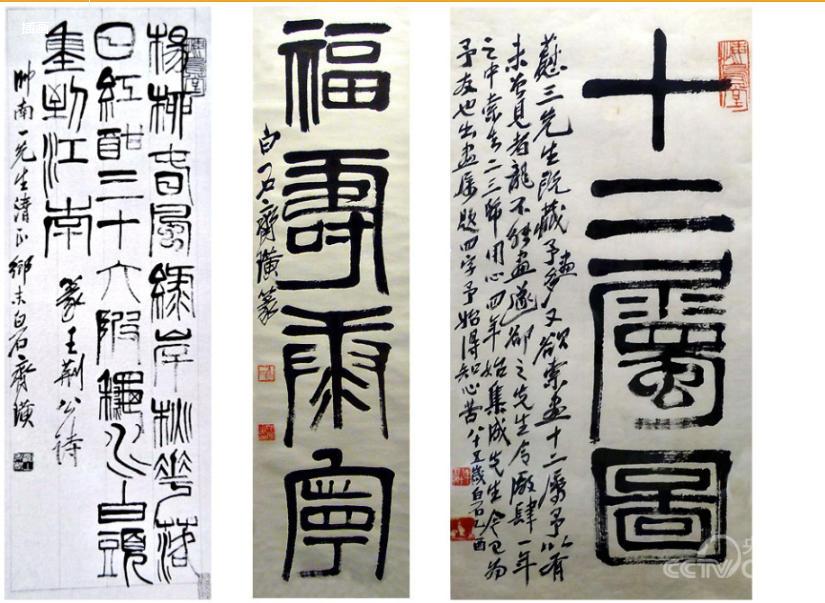 插画
楊柳春風綠岸秋花落
日紅酣三十六陂穐水白頭
重到江南
篆王荊公詩
帥南一先生清正鄉末白石齊璜
福壽康寧
白石齊璜篆
十二屬圖
慰三先生既藏予畫多又欲索畫十二屬予以有
未曾見者龍不能畫遂卻之先生令廠肆一年
之中索去二三幅用心四年始集成先生今日為
予友也出畫屬題四字予始得知心苦八十五歲白石乙酉
CCTV 央